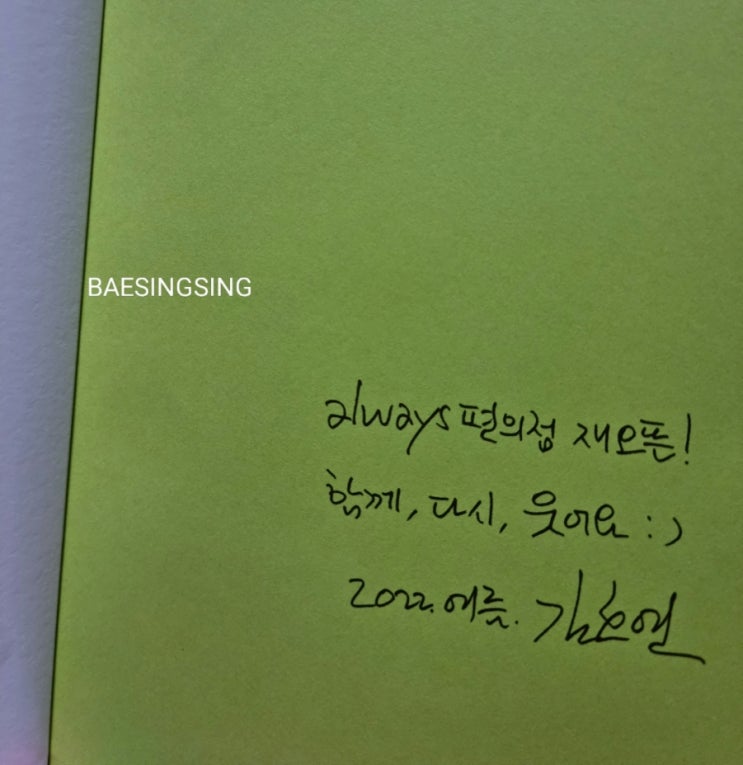 BAESINGSING
always편의점 재오픈!
함께, 다시, 웃어요 :)
2022.여름. 김호연